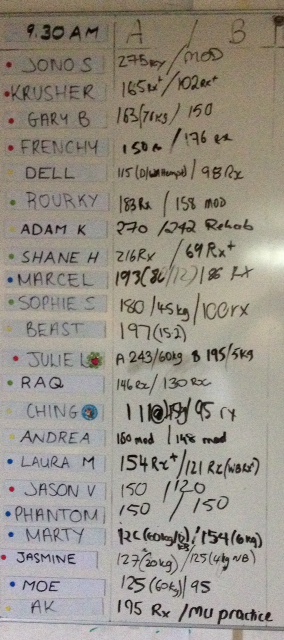 9.30 AM A / B
JONO S 275kg / MOD
KRUSHER 165Rx+ / 102Rx+
GARY B 163(76kg) / 150
FRENCHY 150 Rx / 176 Rx
DELL 115 / 98 Rx
ROURKY 183Rx / 158 MOD
ADAM K 270 / 242 Rehab
SHANE H 216Rx / 69 Rx+
MARCEL 193 / 86 RX
SOPHIE S 180/45kg / 100rx
BEAST 197(152)
JULIE L A 243/60kg B 195/5kg
RAQ 146Rx / 130Rx
CHING 111 / 95 rx
ANDREA 160 mod / 148 mod
LAURA M 154Rx+ / 121 Rx
JASON V 150 / 120
PHANTOM 150 / 150
MARTY / 154(6kg)
JASMINE 127(20kg) / 125(4kg NB)
MOE 125(60kg) / 95
AK 195 Rx / MU practice